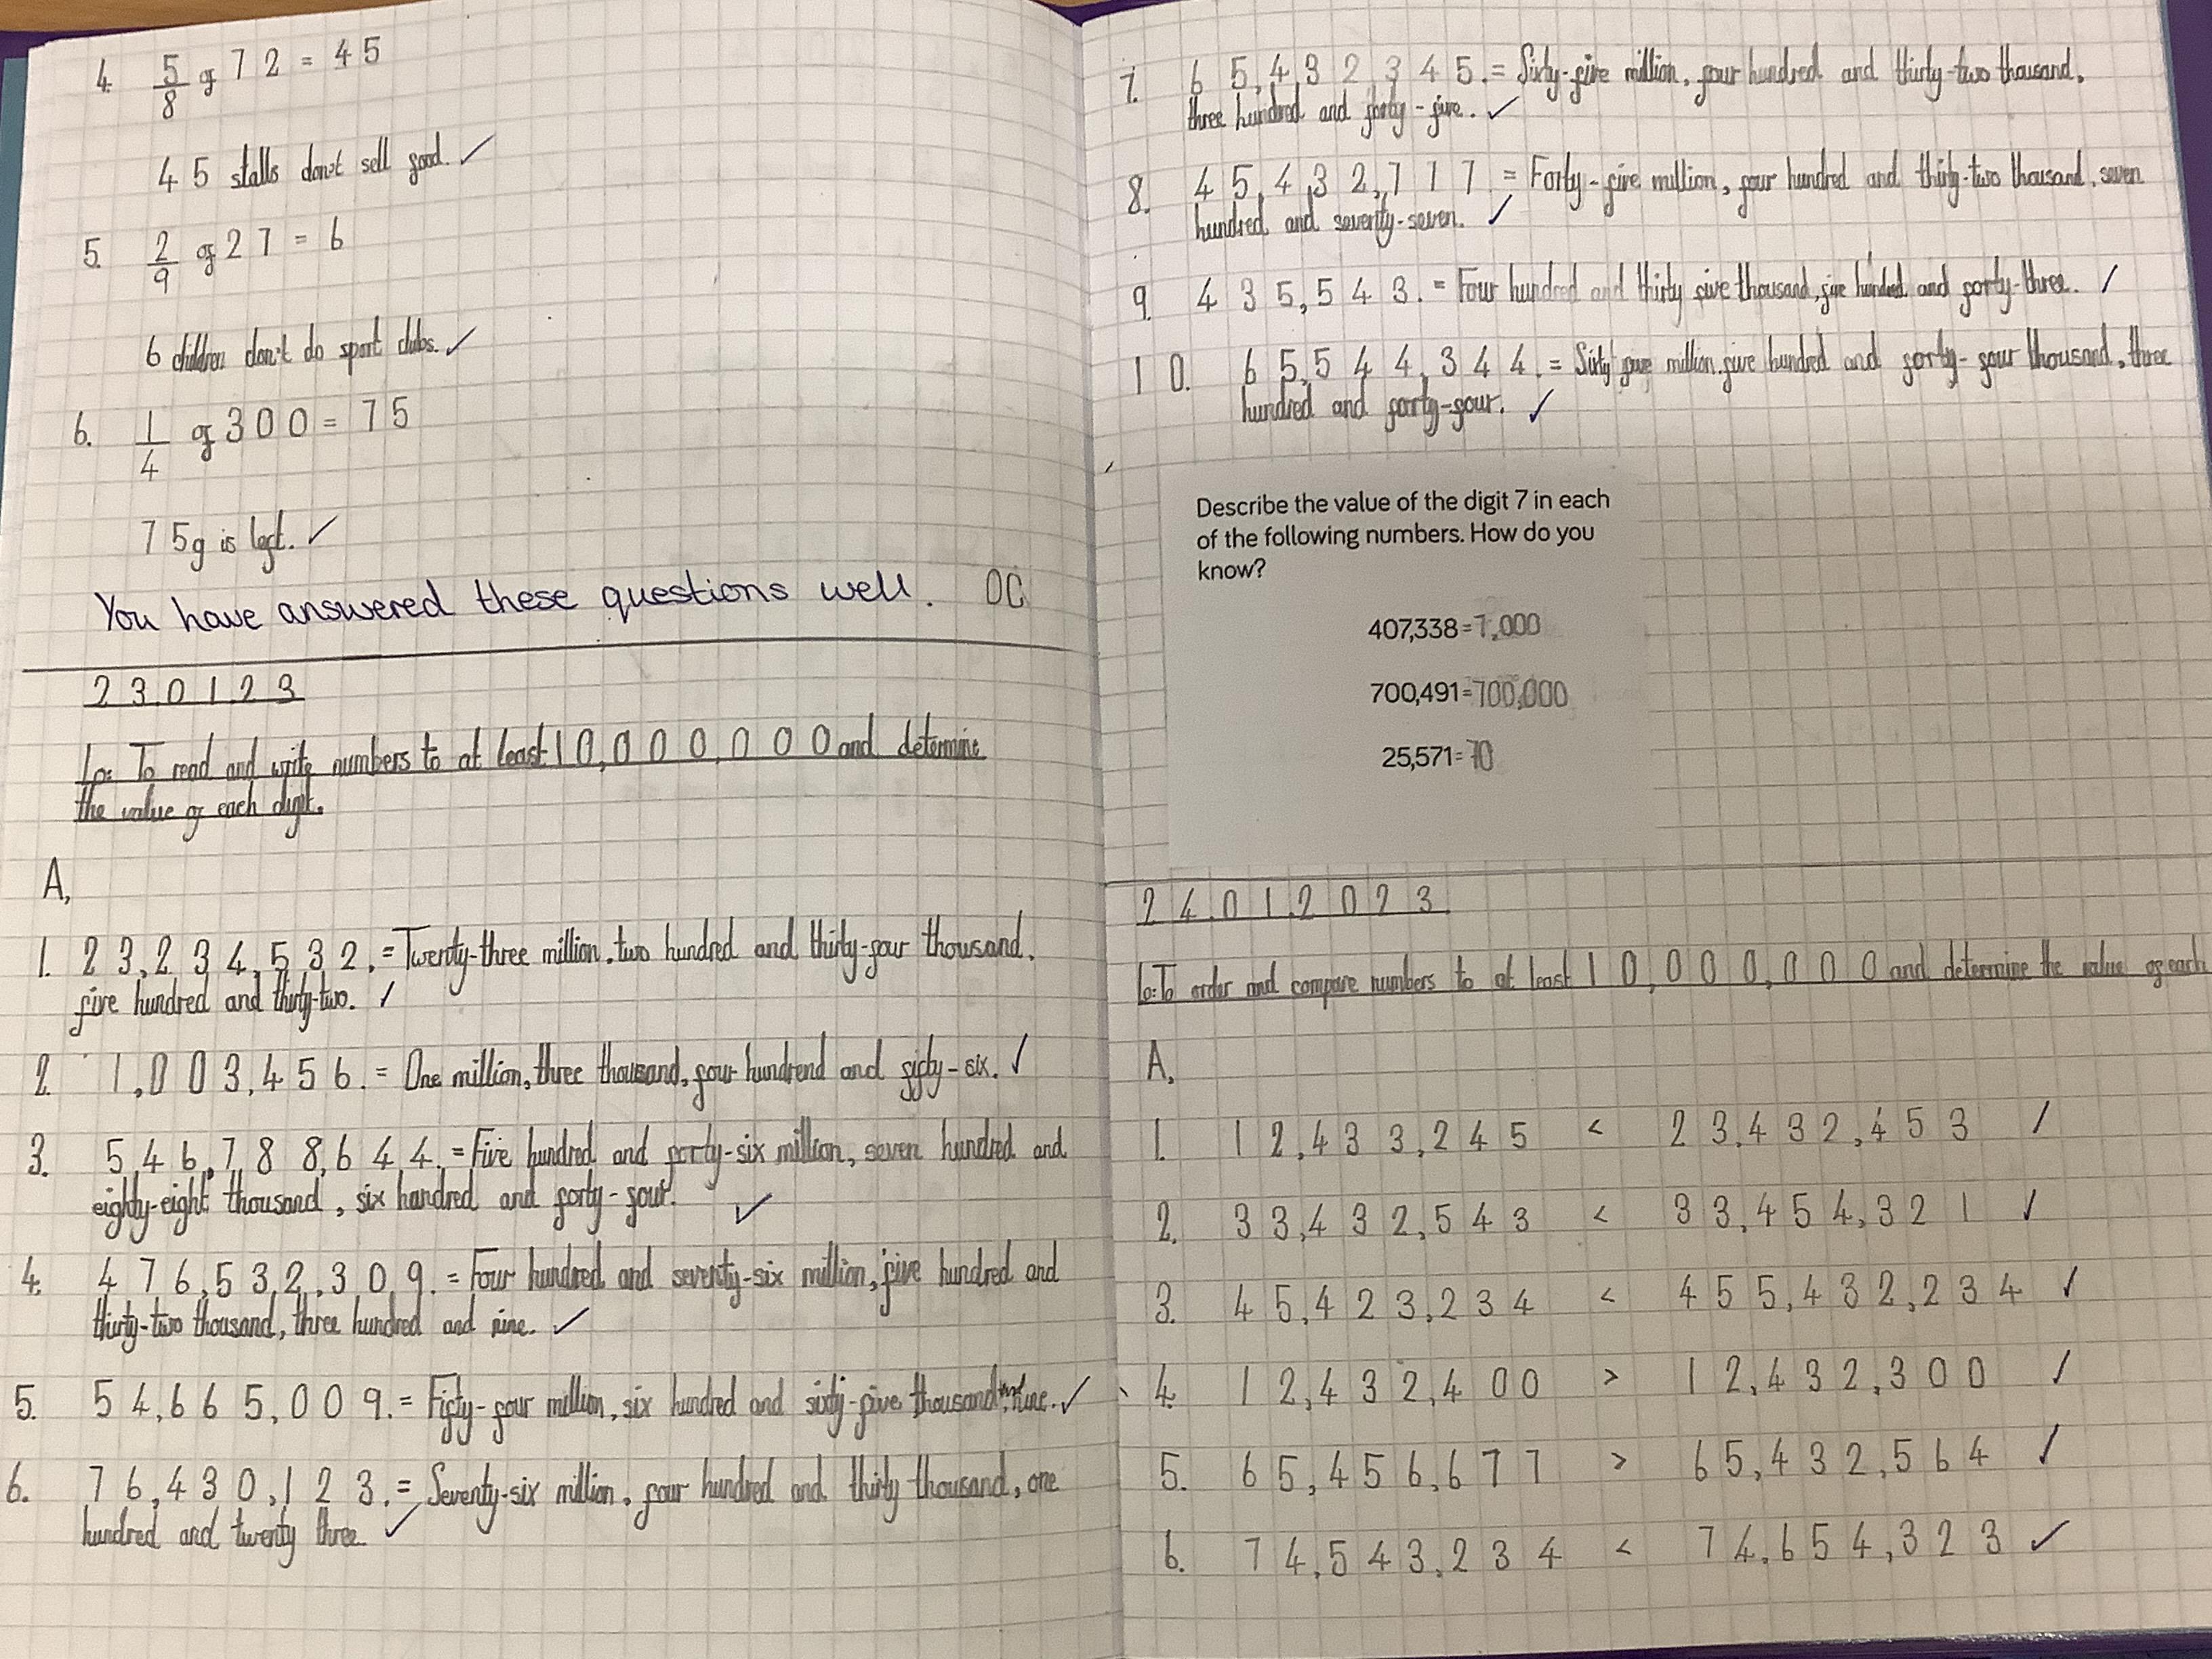 4. 5/8 of 72 = 45
45 stalls don't sell food. ✓
5. 2/9 of 27 = 6
6 children don't do sport clubs. ✓
6. 1/4 of 300 = 75
75g is left. ✓
You have answered these questions well. OC
23.01.23
Lo: To read and write numbers to at least 10,000,000 and determine
the value of each digit.
A,
1. 23,234,532. = Twenty-three million, two hundred and thirty-four thousand,
five hundred and thirty-two. ✓
2. 1,003,456. = One million, three thousand, four hundrend and fifty-six. ✓
3. 546,788,644. = Five hundred and forty-six million, seven hundred and
eighty-eight thousand, six hundred and forty-four. ✓
4. 476,532,309. = Four hundred and seventy-six million, five hundred and
thirty-two thousand, three hundred and nine. ✓
5. 54,665,009. = Fifty-four million, six hundred and sixty-five thousand and nine. ✓
6. 76,430,123. = Seventy-six million, four hundred and thirty thousand, one
hundred and twenty three. ✓
7. 65,432,345. = Sixty-five million, four hundred and thirty-two thousand,
three hundred and forty-five. ✓
8. 45,432,777. = Forty-five million, four hundred and thirty-two thousand, seven
hundred and seventy-seven. ✓
9. 435,543. = Four hundred and thirty five thousand, five hundred and forty-three. ✓
10. 65,544,344. = Sixty five million, five hundred and forty-four thousand, three
hundred and forty-four. ✓
Describe the value of the digit 7 in each
of the following numbers. How do you
know?
407,338 = 7,000
700,491 = 700,000
25,571 = 70
24.01.2023.
Lo: To order and compare numbers to at least 10,000,000 and determine the value of each
A,
1. 12,433,245 < 23,432,453 ✓
2. 33,432,543 < 33,454,321 ✓
3. 45,423,234 < 455,432,234 ✓
4. 12,432,400 > 12,432,300 ✓
5. 65,456,677 > 65,432,564 ✓
6. 74,543,234 < 74,654,323 ✓